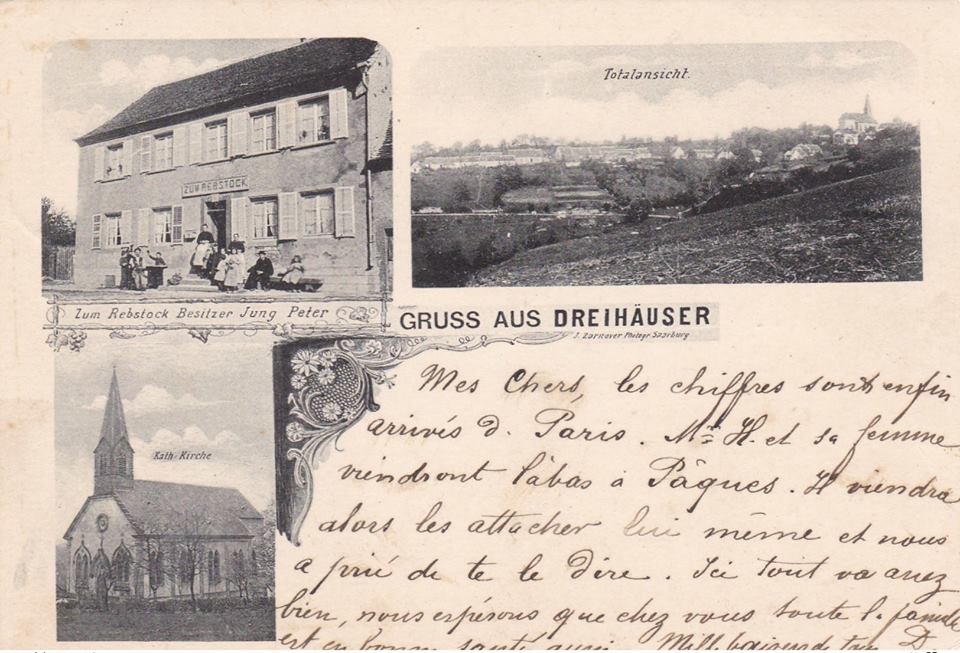 Totalansicht.
ZUM REBSTOCK
Zum Rebstock Besitzer Jung Peter
GRUSS AUS DREIHÄUSER
J. Zarnover Photogr Saarburg
Kath-Kirche
Mes Chers, les chiffres sont enfin
arrivés d. Paris. Mr H. et sa femme
viendront làbas à Pâques. Il viendra
alors les attacher lui même et nous
a prié de te le dire. Ici tout va assez
bien, nous espérons que chez vous toute l. famille
est en bonne santé aussi. Mill baisers d